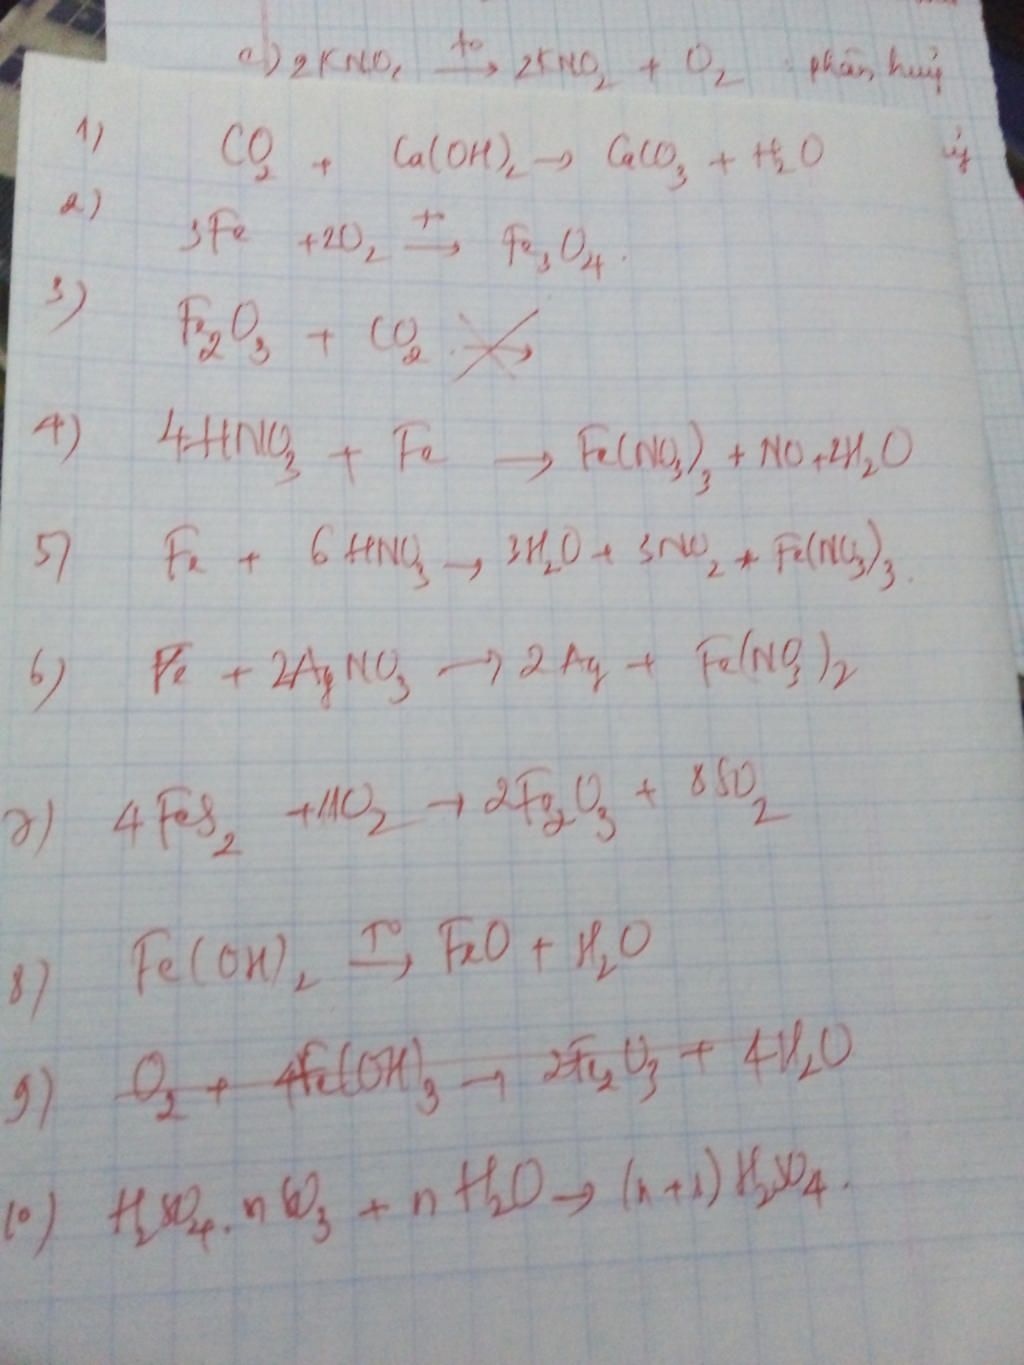 c) 2KNO₃ →(t°) 2KNO₂ + O₂ : phân huỷ
1) CO₂ + Ca(OH)₂ → CaCO₃ + H₂O
2) 3Fe + 2O₂ →(t°) Fe₃O₄.
3) Fe₂O₃ + CO₂
4) 4HNO₃ + Fe → Fe(NO₃)₃ + NO + 2H₂O
5) Fe + 6HNO₃ → 3H₂O + 3NO₂ + Fe(NO₃)₃.
6) Fe + 2AgNO₃ → 2Ag + Fe(NO₃)₂
7) 4FeS₂ + 11O₂ → 2Fe₂O₃ + 8SO₂
8) Fe(OH)₂ →(T°) FeO + H₂O
9) O₂ + 4Fe(OH)₃ → 2Fe₂O₃ + 4H₂O
10) H₂SO₄.nSO₃ + nH₂O → (n+1)H₂SO₄.